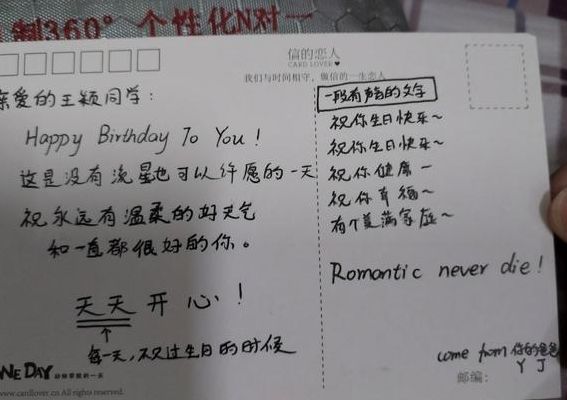 制360°个性化N对一
信的恋人
CARD LOVER♥
我们与时间相守,做信的一生恋人
亲爱的王颖同学:
Happy Birthday To You!
这是没有流星也可以许愿的一天
祝永远有温柔的好天气
和一直都很好的你。
天天开心!
↑
每一天,不只过生日的时候
一段有声音的文字
祝你生日快乐~
祝你生日快乐~
祝你健康~
祝你幸福~
有个美满家庭~
Romantic never die!
come from 你的爸爸
Y J
邮编:
NE DAY
www.cardlover.cn All rights reserved.